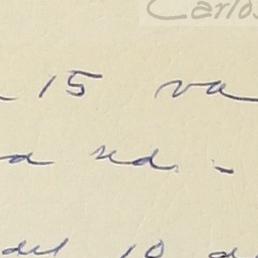 Carlos
15 va
a red. -
del 10 d